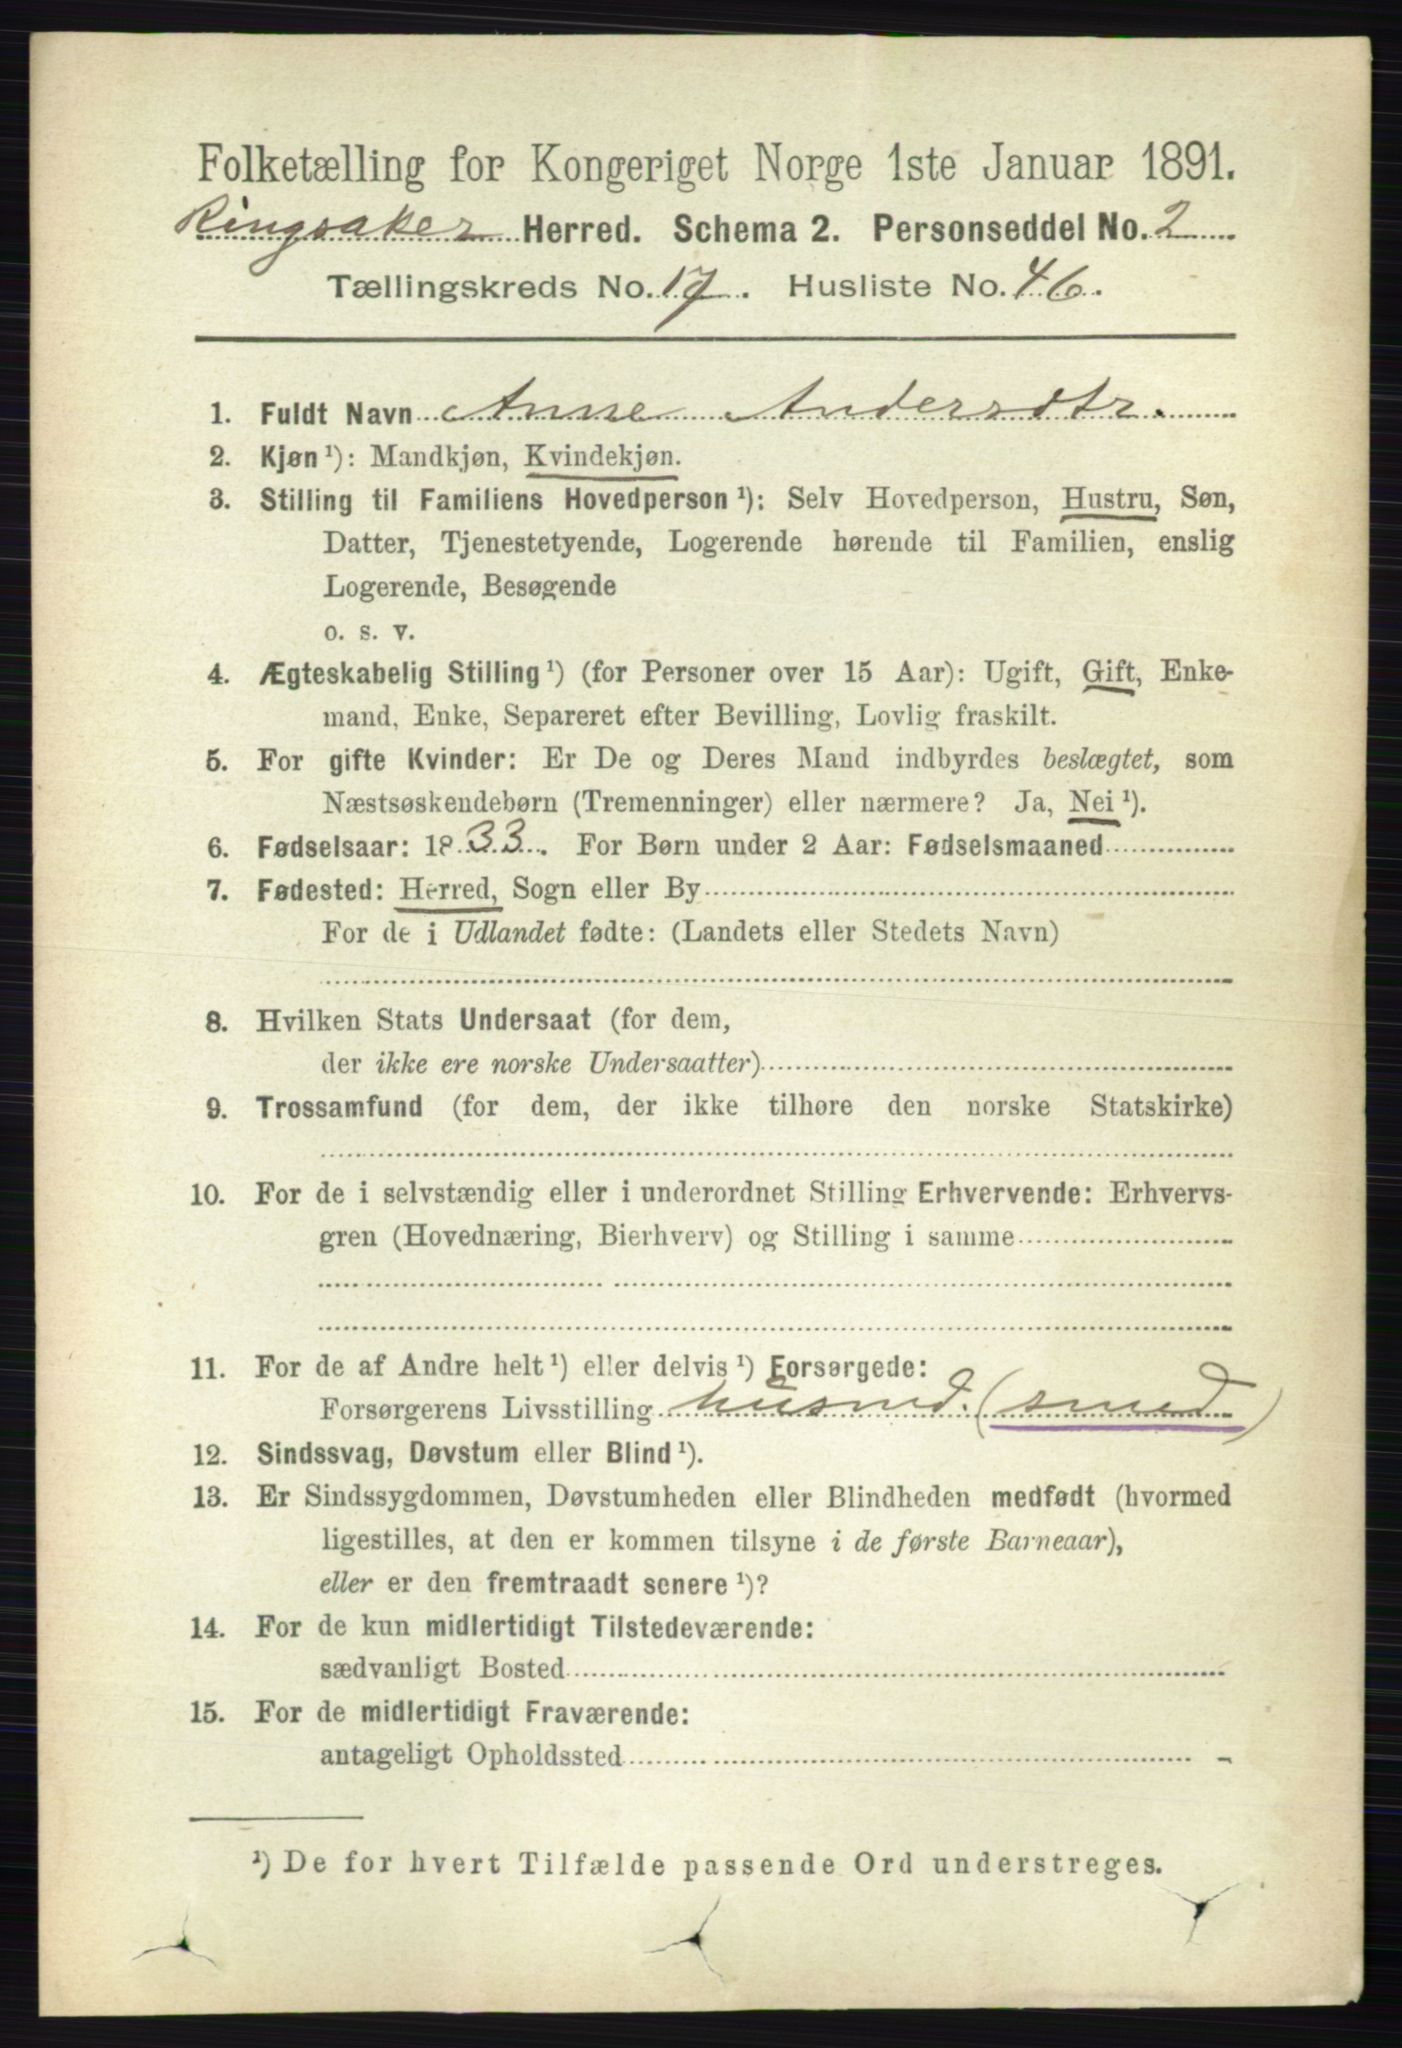 Folketælling for Kongeriget Norge 1ste Januar 1891.
Ringsaker Herred. Schema 2. Personseddel No. 2
Tællingskreds No. 17. Husliste No. 46.
1. Fuldt Navn Anne Andersdtr.
2. Kjøn ¹): Mandkjøn, Kvindekjøn.
3. Stilling til Familiens Hovedperson ¹): Selv Hovedperson, Hustru, Søn,
Datter, Tjenestetyende, Logerende hørende til Familien, enslig
Logerende, Besøgende
o. s. v.
4. Ægteskabelig Stilling ¹) (for Personer over 15 Aar): Ugift, Gift, Enke-
mand, Enke, Separeret efter Bevilling, Lovlig fraskilt.
5. For gifte Kvinder: Er De og Deres Mand indbyrdes beslægtet, som
Næstsøskendebørn (Tremenninger) eller nærmere? Ja, Nei ¹).
6. Fødselsaar: 1833. For Børn under 2 Aar: Fødselsmaaned
7. Fødested: Herred, Sogn eller By
For de i Udlandet fødte: (Landets eller Stedets Navn)
8. Hvilken Stats Undersaat (for dem,
der ikke ere norske Undersaatter)
9. Trossamfund (for dem, der ikke tilhøre den norske Statskirke)
10. For de i selvstændig eller i underordnet Stilling Erhvervende: Erhvervs-
gren (Hovednæring, Bierhverv) og Stilling i samme
11. For de af Andre helt ¹) eller delvis ¹) Forsørgede:
Forsørgerens Livsstilling husmd. (smed)
12. Sindssvag, Døvstum eller Blind ¹).
13. Er Sindssygdommen, Døvstumheden eller Blindheden medfødt (hvormed
ligestilles, at den er kommen tilsyne i de første Barneaar),
eller er den fremtraadt senere ¹)?
14. For de kun midlertidigt Tilstedeværende:
sædvanligt Bosted
15. For de midlertidigt Fraværende:
antageligt Opholdssted
¹) De for hvert Tilfælde passende Ord understreges.